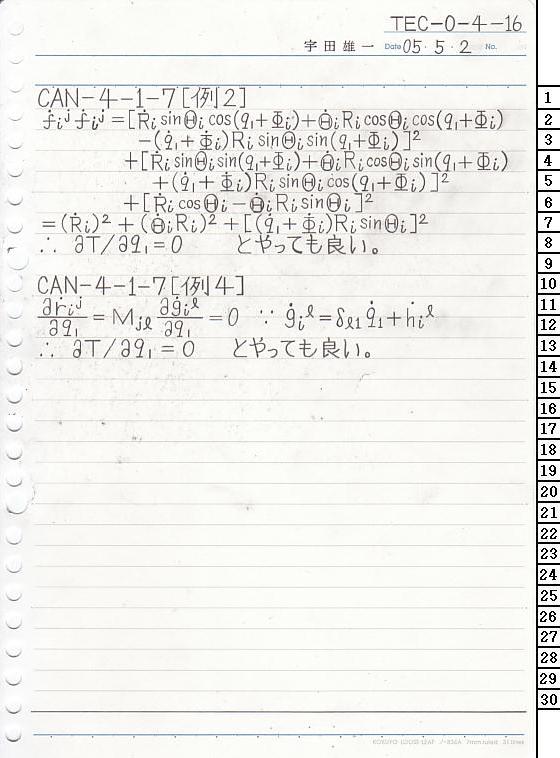 TEC-O-4-16
宇田雄一 Date 05・5・2 No.
CAN-4-1-7[例2]
ḟᵢʲ ḟᵢʲ = [Ṙᵢ sinΘᵢ cos(q₁+Φᵢ)+Θ̇ᵢRᵢcosΘᵢcos(q₁+Φᵢ)
-(q̇₁+Φ̇ᵢ)RᵢsinΘᵢsin(q₁+Φᵢ)]²
+[ṘᵢsinΘᵢsin(q₁+Φᵢ)+Θ̇ᵢRᵢcosΘᵢsin(q₁+Φᵢ)
+(q̇₁+Φ̇ᵢ)RᵢsinΘᵢcos(q₁+Φᵢ)]²
+[ṘᵢcosΘᵢ-Θ̇ᵢRᵢsinΘᵢ]²
=(Ṙᵢ)²+(Θ̇ᵢRᵢ)²+[(q̇₁+Φ̇ᵢ)RᵢsinΘᵢ]²
∴ ∂T/∂q₁=0 とやっても良い。
CAN-4-1-7[例4]
∂ṙᵢʲ/∂q₁ = Mⱼₗ ∂ġᵢˡ/∂q₁ = 0 ∵ ġᵢˡ=δₗ₁q̇₁+ḣᵢˡ
∴ ∂T/∂q₁=0 とやっても良い。
1
2
3
4
5
6
7
8
9
10
11
12
13
14
15
16
17
18
19
20
21
22
23
24
25
26
27
28
29
30